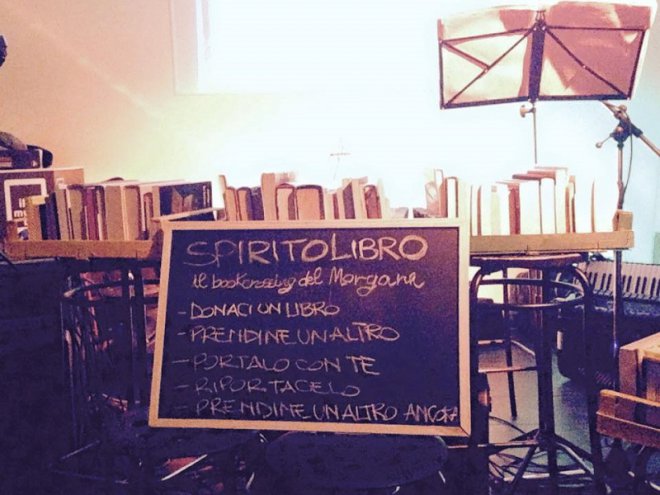 SPIRITOLIBRO
il bookcrossing del Morgana
- DONACI UN LIBRO
- PRENDINE UN ALTRO
- PORTALO CON TE
- RIPORTACELO
- PRENDINE UN ALTRO ANCORA